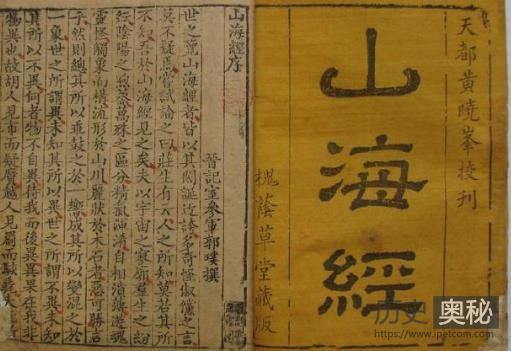 天都黃曉峯校刊
山海經
槐蔭草堂藏版
山海經序
晉記室參軍郭璞撰
世之覽山海經者皆以其閎誕迂誇多奇怪俶儻之言
莫不疑焉嘗試論之曰莊生有云人之所知莫若其所
不知吾於山海經見之矣夫以宇宙之寥廓羣生之紛
紜陰陽之煦蒸萬殊之區分精氣渾淆自相濆薄遊魂
靈怪觸象而構流形於山川麗狀於木石者惡可勝言
乎然則總其所以乖鼓之於一響成其所以變混之於
一象世之所謂異未知其所以異世之所謂不異未知
其所以不異何者物不自異待我而後異異果在我非
物異也故胡人見布而疑黂越人見罽而駭
历史奥秘
https://www.ipetcom.com